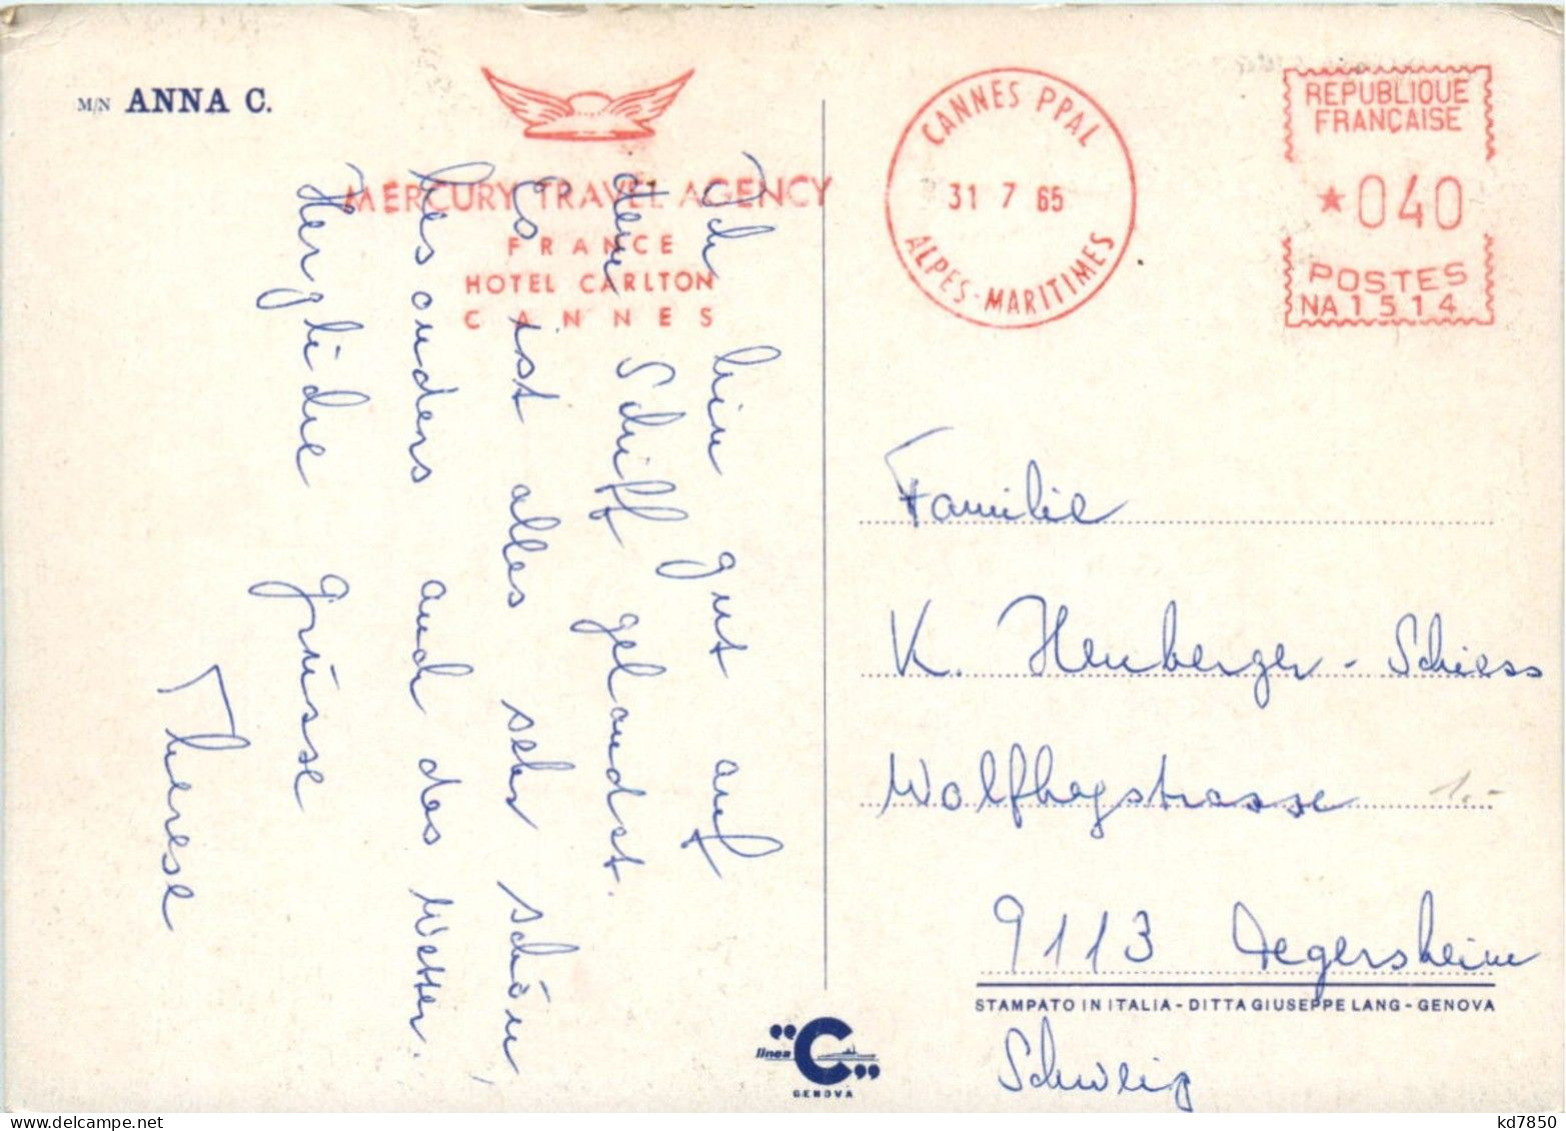 M/N ANNA C.
MERCURY TRAVEL AGENCY
FRANCE
HOTEL CARLTON
CANNES
CANNES PPAL
31 7 65
ALPES-MARITIMES
REPUBLIQUE
FRANÇAISE
*040
POSTES
NA 1514
Ich bin gut auf
dem Schiff gelandet.
Es ist alles sehr schön,
besonders auch das Wetter.
Herzliche Grüsse
Therese
Familie
K. Heuberger-Schiess
Wolfhagstrasse
1.-
9113 Degersheim
STAMPATO IN ITALIA - DITTA GIUSEPPE LANG - GENOVA
Schweiz
linea
"C"
GENOVA
kd7850